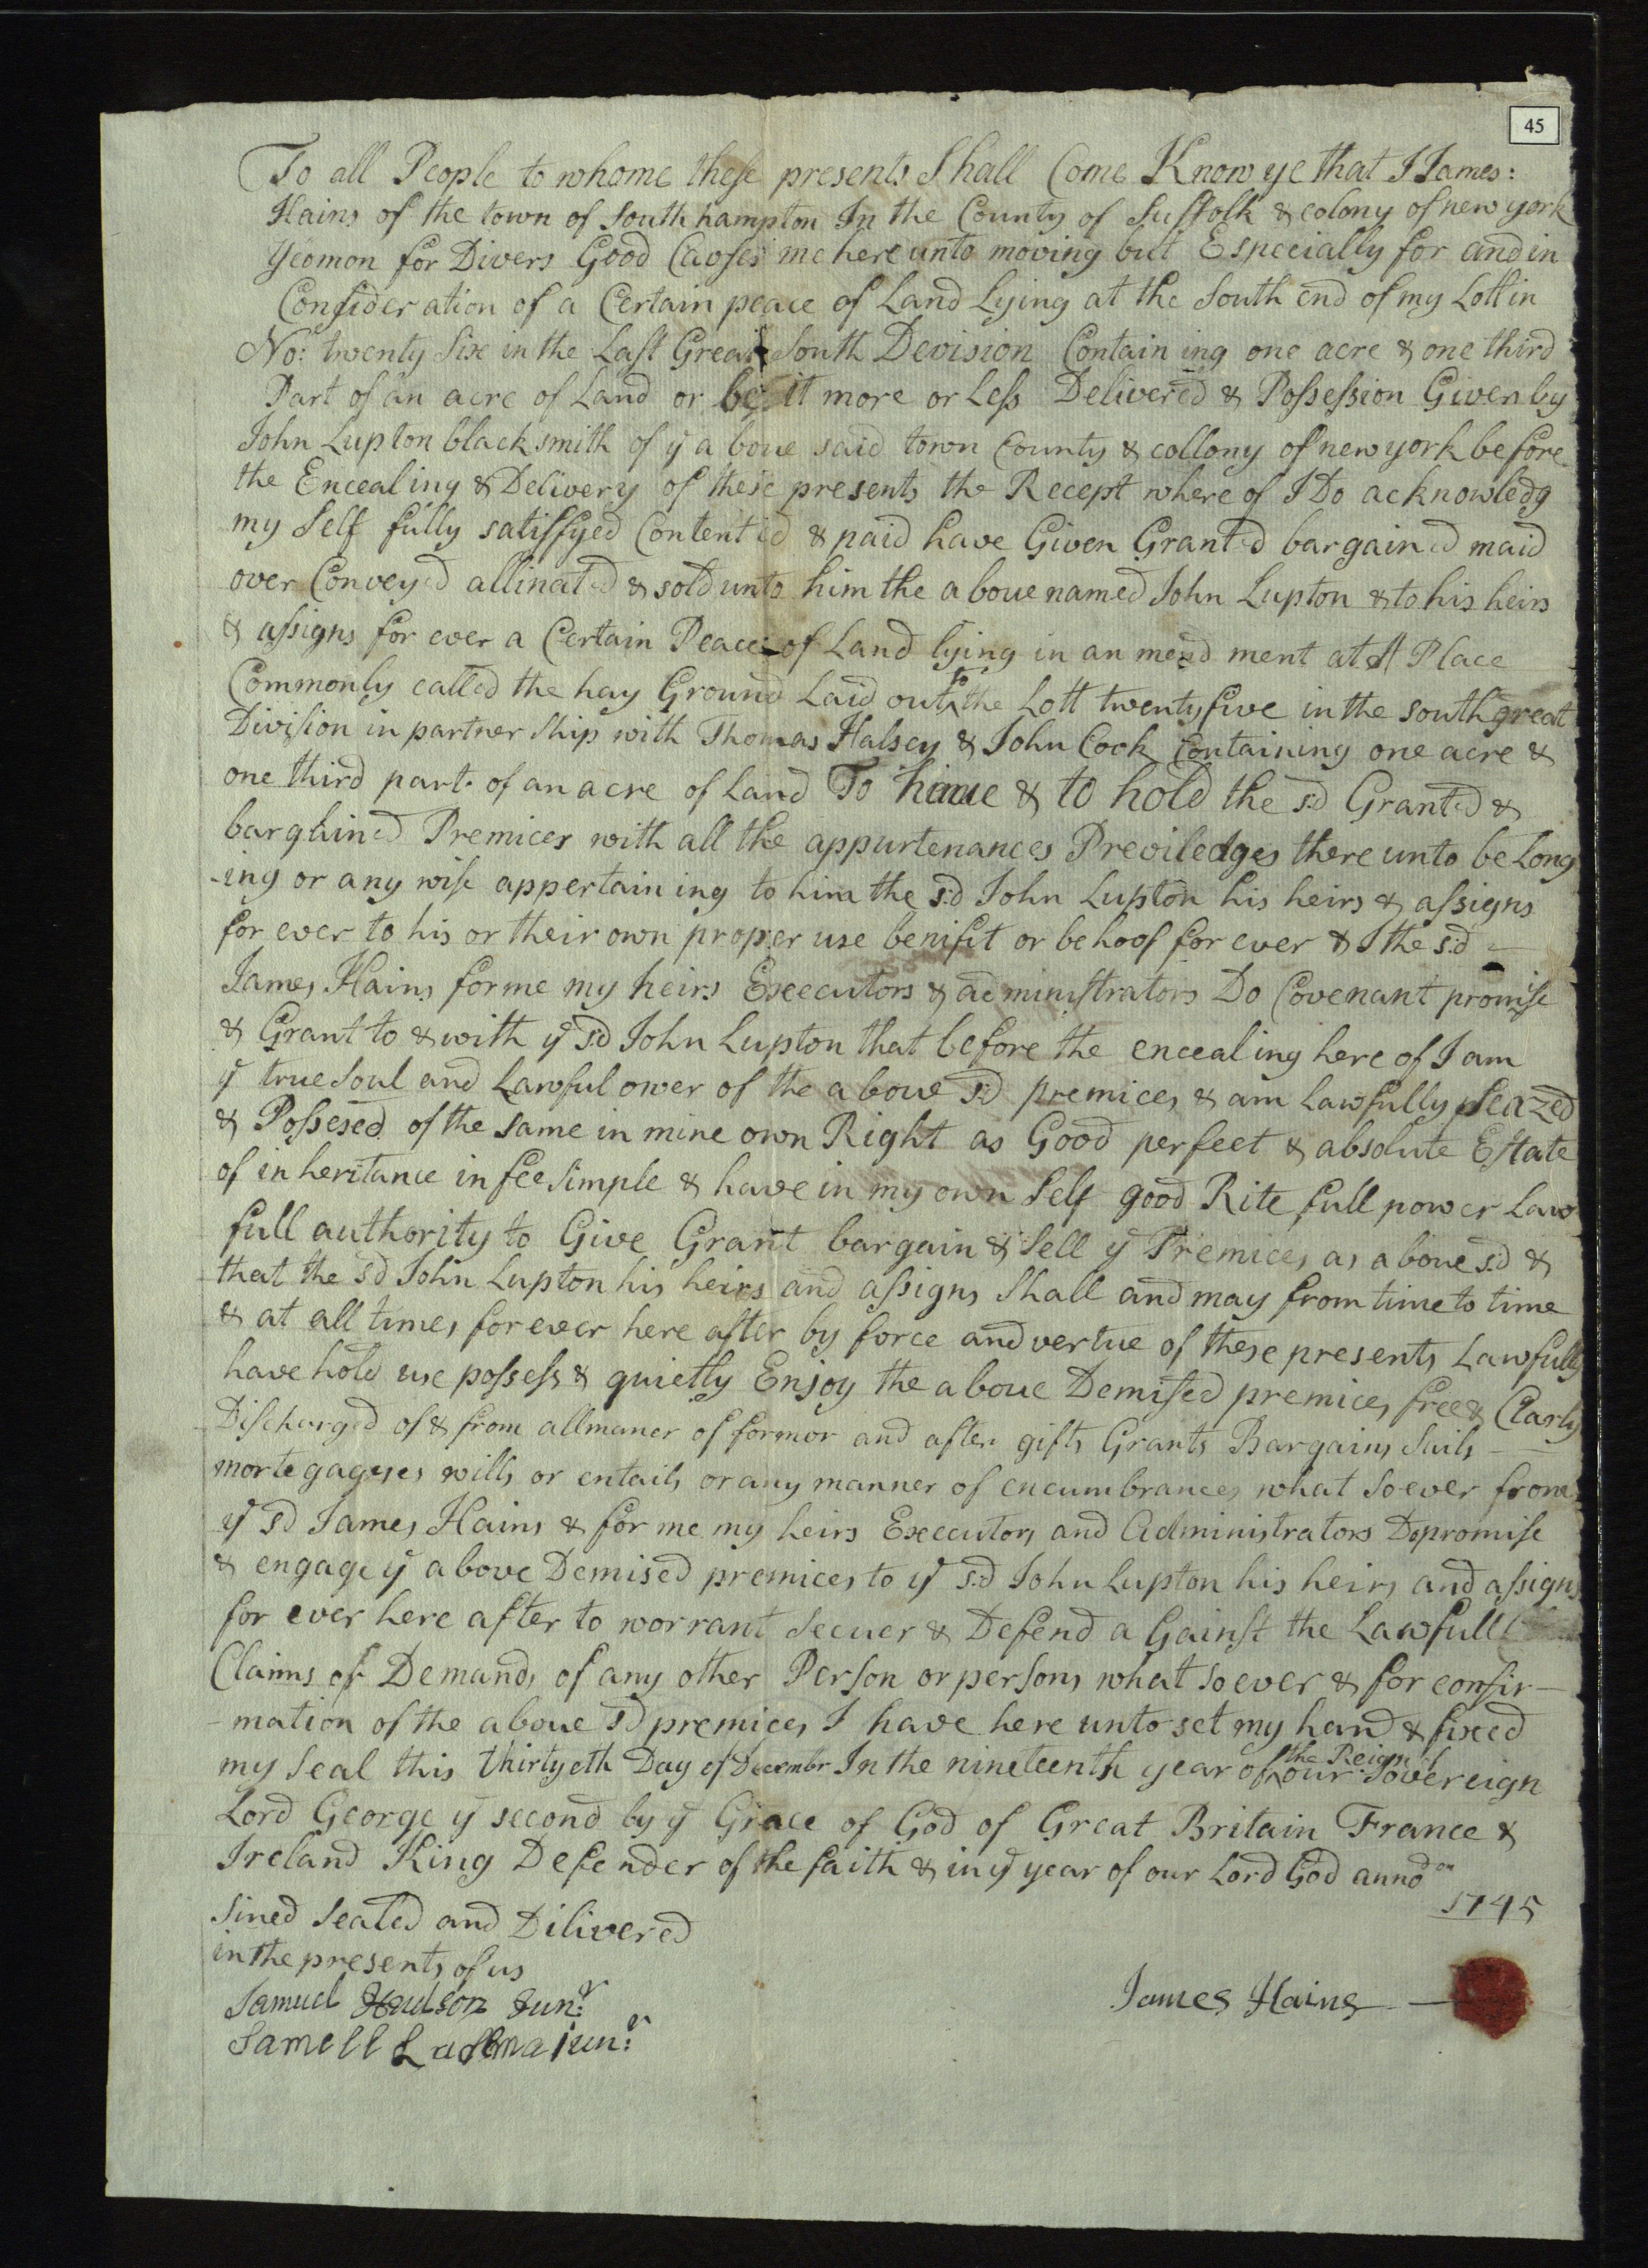 45
To all People to whome these presents Shall Come Know ye that I James:
Hains of the town of Southhampton In the County of Suffolk & colony of new york
Yeomon for Divers Good Causes me here unto moving but Especially for and in
Consideration of a Certain peace of Land Lying at the South end of my Lott in
No: twenty Six in the Last Great South Devision Contain ing one acre & one third
Part of an acre of Land or be it more or Less Delivered & Possession Given by
John Lupton black smith of ye a boue said town County & collony of new york before
the Encealing & Delivery of these presents the Recept where of I Do acknowledg
my Self fully satisfyed Contented & paid have Given Granted bargained maid
over Conveyed allinated & sold unto him the a boue named John Lupton & to his heirs
& assigns for ever a Certain Peace of Land lying in an mend ment at A Place
Commonly called the hay Ground Laid out to the Lott twenty five in the south great
Division in partner Ship with Thomas Halsey & John Cook Containing one acre &
one third part of an acre of Land To haue & to hold the sd Granted &
bargained Premices with all the appurtenances Previledges there unto be Long
-ing or any wise appertain ing to him the sd John Lupton his heirs & assigns
for ever to his or their own proper use benifit or behoof for ever & I the sd
James Hains for me my heirs Execcutors & administrators Do Covenant promise
& Grant to & with ye sd John Lupton that before the encealing here of I am
ye true Soul and Lawful ower of the a boue sd premices & am Lawfully seazed
& Possesed of the Same in mine own Right as Good perfect & absolute Estate
of in heritance in fee Simple & have in my own Self good Rite full power Law
full authority to Give Grant bargain & Sell ye Premices as a boue sd &
that the sd John Lupton his heirs and assigns Shall and may from time to time
& at all times for ever here after by force and vertue of these presents Lawfully
have hold use possess & quietly Enjoy the a boue Demised premices free & Clarly
Discharged of & from all maner of formor and after gifts Grants Bargains Sails
morte gageses wills or entails or any manner of encumbrances what so ever from
ye sd James Hains & for me my heirs Executors and Administrators Do promise
& engage ye above Demised premices to ye sd John Lupton his heirs and assigns
for ever here after to worrant Secuer & Defend a Gainst the Lawfull
Claims of Demands of any other Person or persons what so ever & for confir-
-mation of the a boue sd premices I have here unto set my hand & fixed
my Seal this thirtyeth Day of Decembr In the nineteenth year of the Reign of our Sovereign
Lord George ye second by ye Grace of God of Great Britain France &
Ireland King Defender of the faith & in ye year of our Lord God anno
1745
Sined Sealed and Dilivered
in the presents of us
Samuel Hudson Junr
Samell junr
James Hains